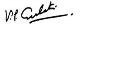 V.P. Gulati